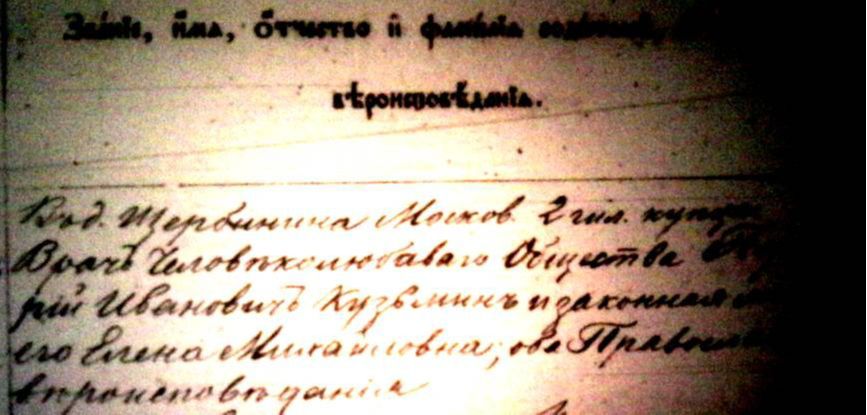 Званіе, имя, отчество и фамилія
вѣроисповѣданія.
Въ д. Щербинина Москов. 2 гил.
Врачъ Человѣколюбаваго Общества
рій Ивановичъ Кузьминъ и законная
его Елена Михайловна, оба
вѣроисповѣданія